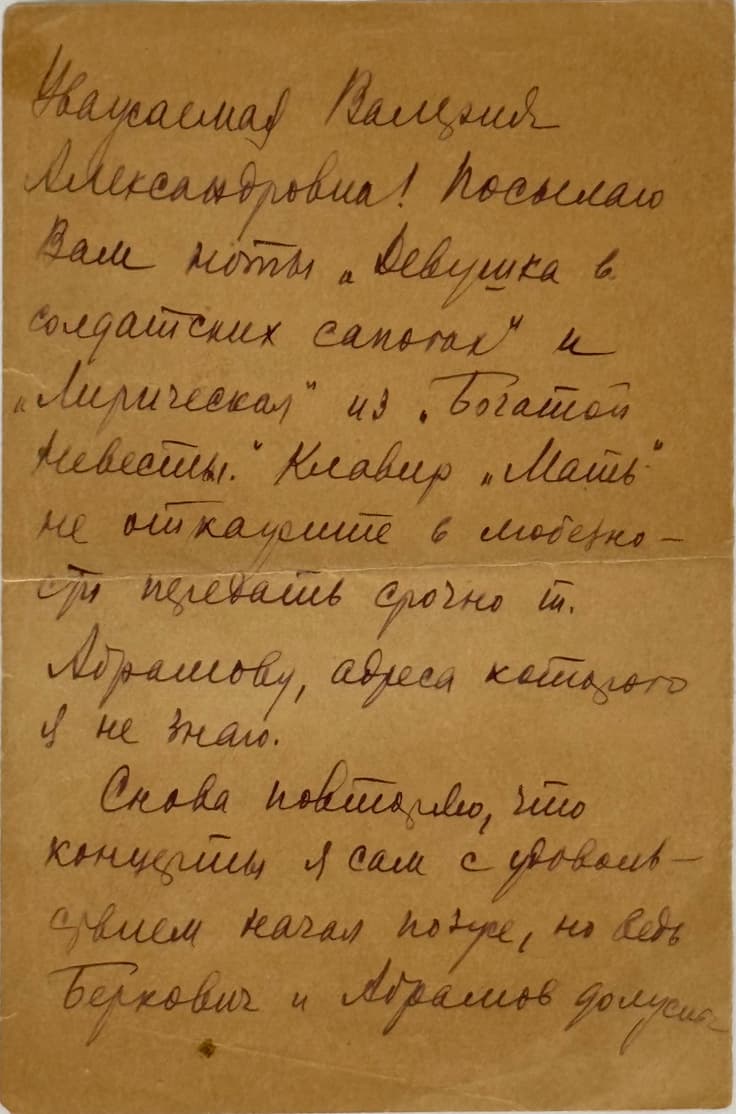 Уважаемая Валерия
Александровна! Посылаю
Вам ноты „Девушка в
солдатских сапогах“ и
„Лирическая“ из „Богатой
Невесты.“ Клавир „Мать“
не откажите в любезно-
сти передать срочно т.
Абрамову, адреса которого
я не знаю.
Снова повторяю, что
концерты я сам с удоволь-
ствием начал позже, но ведь
Беркович и Абрамов должны